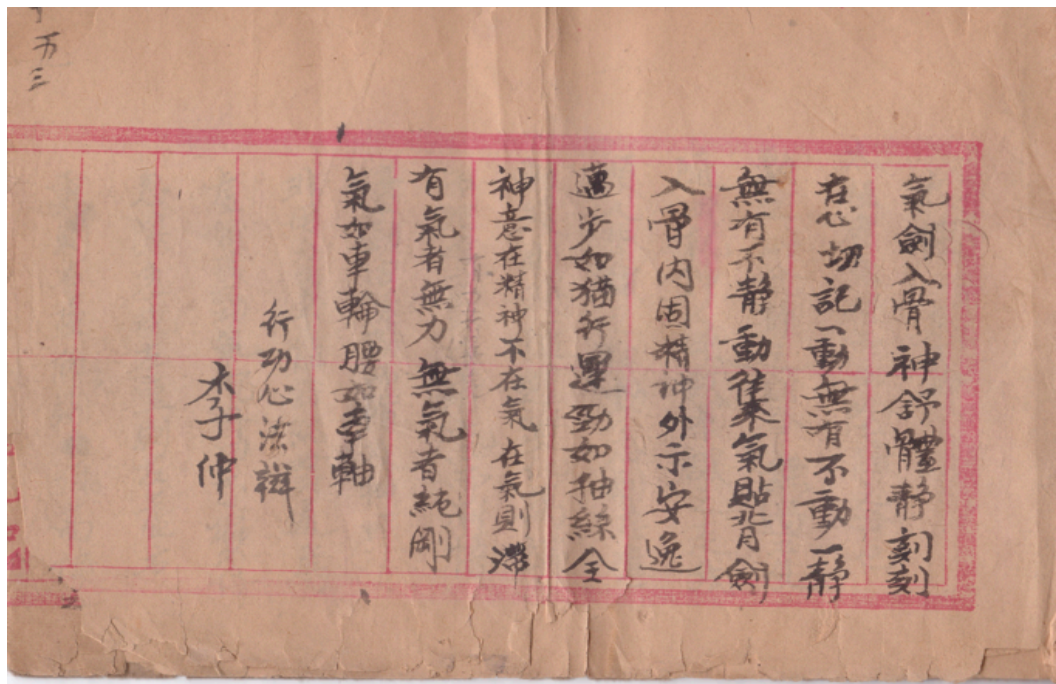 氣劍入骨神舒體静刻刻
在心切記一動無有不動一静
無有不静動集氣貼背劍
入骨内固精神外示安逸
邁步如猫行運勁如抽絲全
神意在精神不在氣在氣則滯
有氣者無力無氣者純剛
氣如車輪腰如車軸
行功心法
李仲